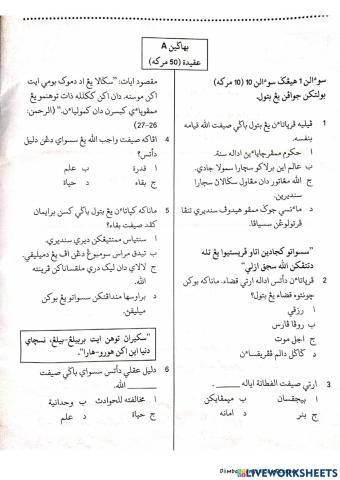 بهاݢين A
عقيدة (50 مركه)
سوءالن 1 هيڠݢ سوءالن 10 (10 مركه)
بولتكن جواڤن يڠ بتول.
1 ڤيليه ڤرياتاءن يڠ بتول باݢي صيفت الله قيامه
بنفسه.
ا حكوم ممڤرچاياءين اداله سنة.
ب عالم اين برلاكو سچارا سمولا جادي.
ج الله مڠاتور دان ملوق سݢالان سچارا
سنديرين.
د مأنسي جوݢ ممڤو هيدوڤ سنديري تنڤا
ڤرتولوڠن سسياڤا.
"سسواتو كجادين اتاو ڤريستيوا يڠ تله
دتتڤكن الله سجق ازلي"
2 ڤرياتاءن د اتس اداله ارتي قضاء. ماناكه بوكن
چونتوه قضاء يڠ بتول؟
ا رزقي
ب روڤا ڤارس
ج اجل موت
د ݢاݢل دالم ڤڤريقساءن
3 ارتي صيفت الفطانة اياله ______.
ا بيجقسان ب ميمڤايكن
ج بنر د امانه
مقصود ايات: "سݢالا يڠ اد دموك بومي ايت
اكن موسنه. دان اكن ككلله ذات توهنمو يڠ
ممڤوڽاءي كبسرن دان كموليأن." (الرحمن:
26-27)
4 اڤاكه صيفت واجب الله يڠ سسواي دڠن دليل
دأتس؟
ا قدرة ب علم
ج بقاء د حياة
5 ماناكه كياتاءن يڠ بتول باݢي كسن برايمان
كڤد صيفت بقاء؟
ا سنتياس ممنتيڠكن ديري سنديري.
ب تيدق مراس سومبوڠ دڠن اڤ يڠ دميليقي.
ج لالاي دان ليک دري ملقساناكن ڤرينته
الله.
د براوسها منداڤتكن سسواتو يڠ بوكن
ميليقن.
"سكيران توهن ايت بربيلڠ-بيلڠ، نسچاي
دنيا اين اكن هورو-هارا".
6 دليل عقلي دأتس سسواي باݢي صيفت
______ الله.
ا مخالفته للحوادث ب وحدانية
ج حياة د علم
LIVEWORKSHEETS